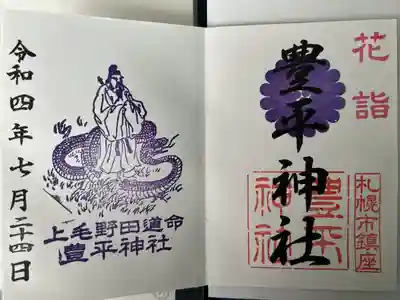 花詣
豊平神社
札幌市鎮座
豊平神社
上毛野田道命
豊平神社
令和四年七月二十四日